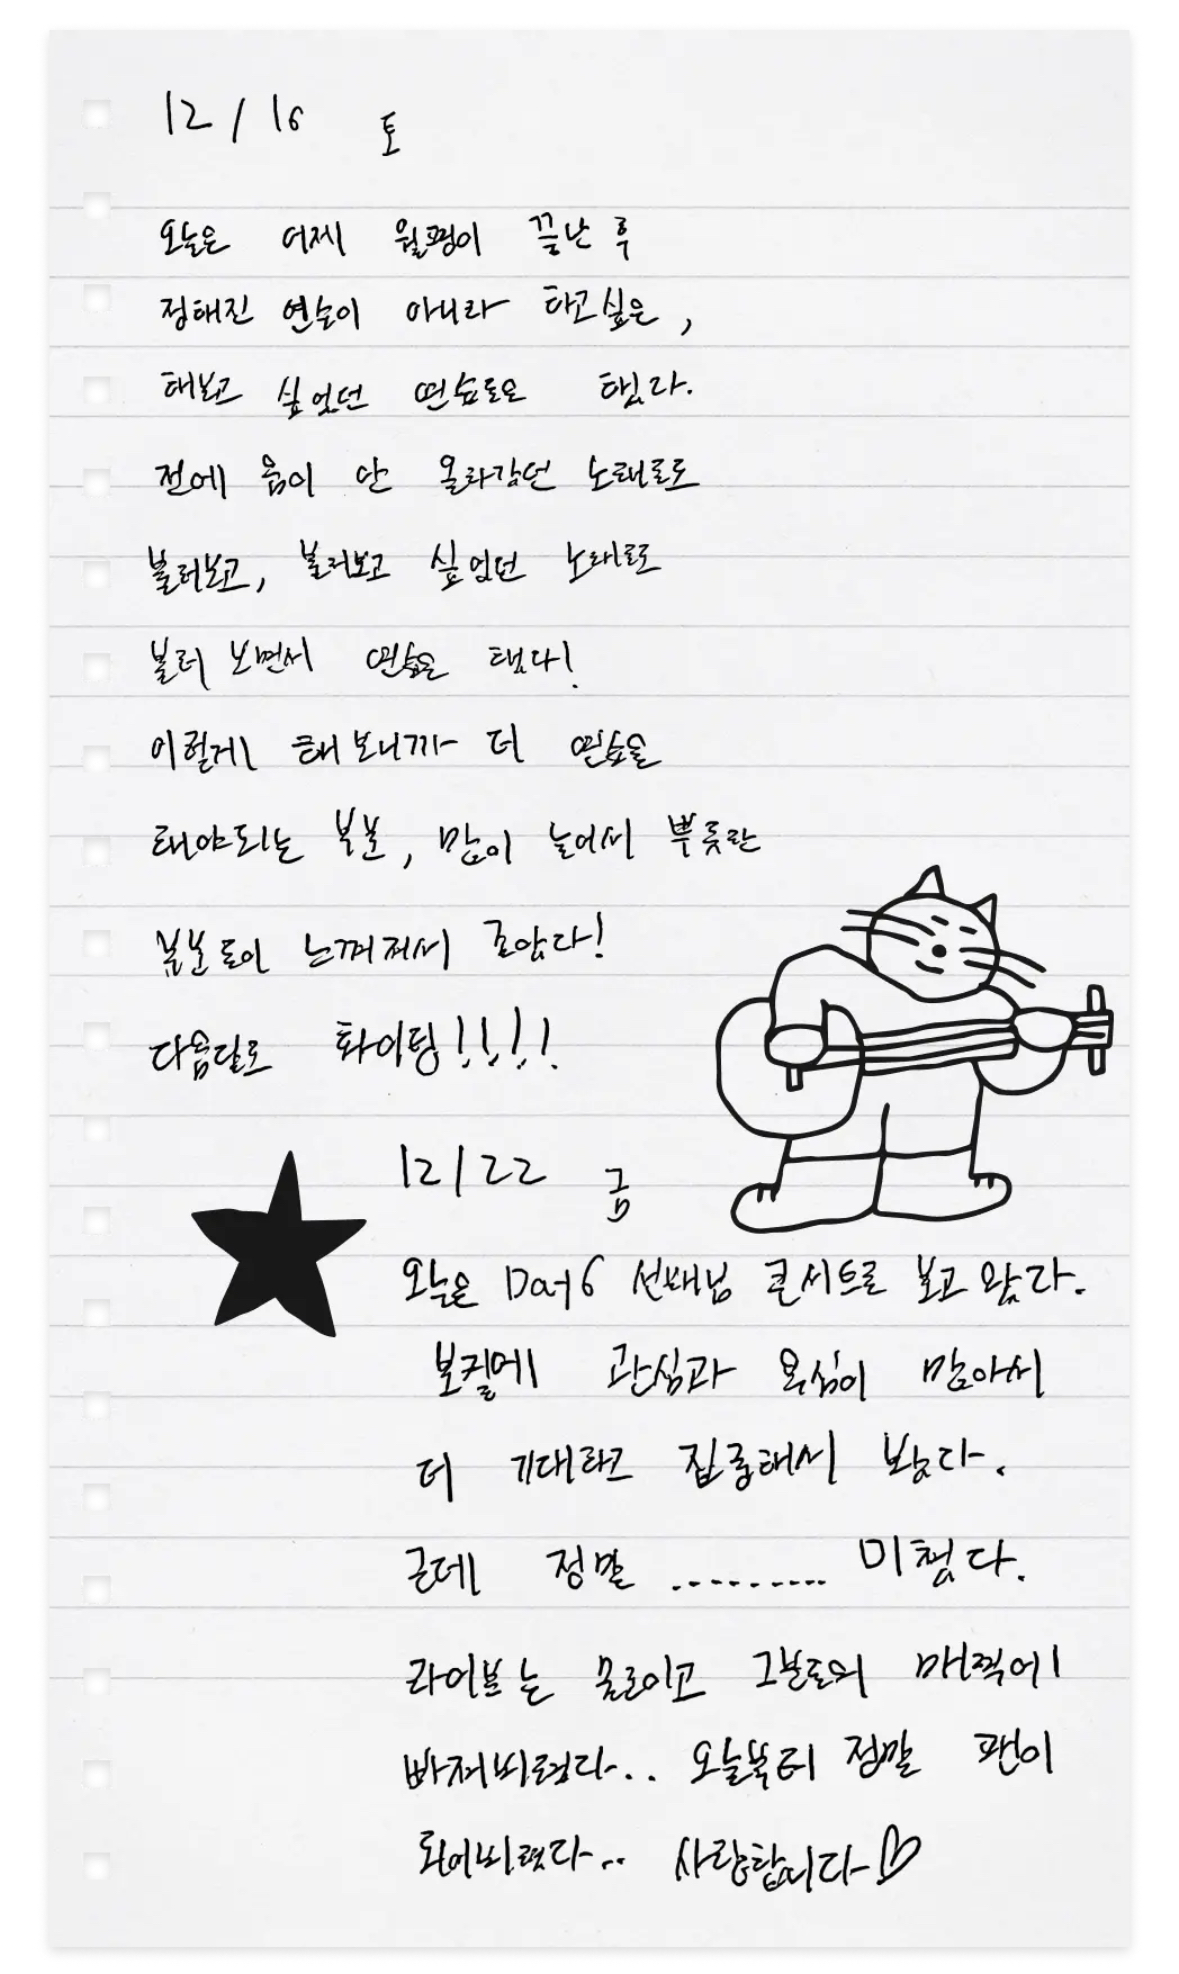 12/16 토
오늘은 어제 월평이 끝난 후
정해진 연습이 아니라 하고싶은,
해보고 싶었던 연습들을 했다.
전에 음이 안 올라갔던 노래들도
불러보고, 불러보고 싶었던 노래들도
불러 보면서 연습을 했다!
이렇게 해보니까 더 연습을
해야되는 부분, 많이 늘어서 뿌듯한
부분들이 느껴져서 좋았다!
다음달도 화이팅!!!!
12/22 금
오늘은 Day6 선배님 콘서트를 보고 왔다.
보컬에 관심과 욕심이 많아서
더 기대하고 집중해서 봤다.
근데 정말 .......... 미쳤다.
라이브는 물론이고 그분들의 매력에
빠져버렸다.. 오늘부터 정말 팬이
되어버렸다.. 사랑합니다♡